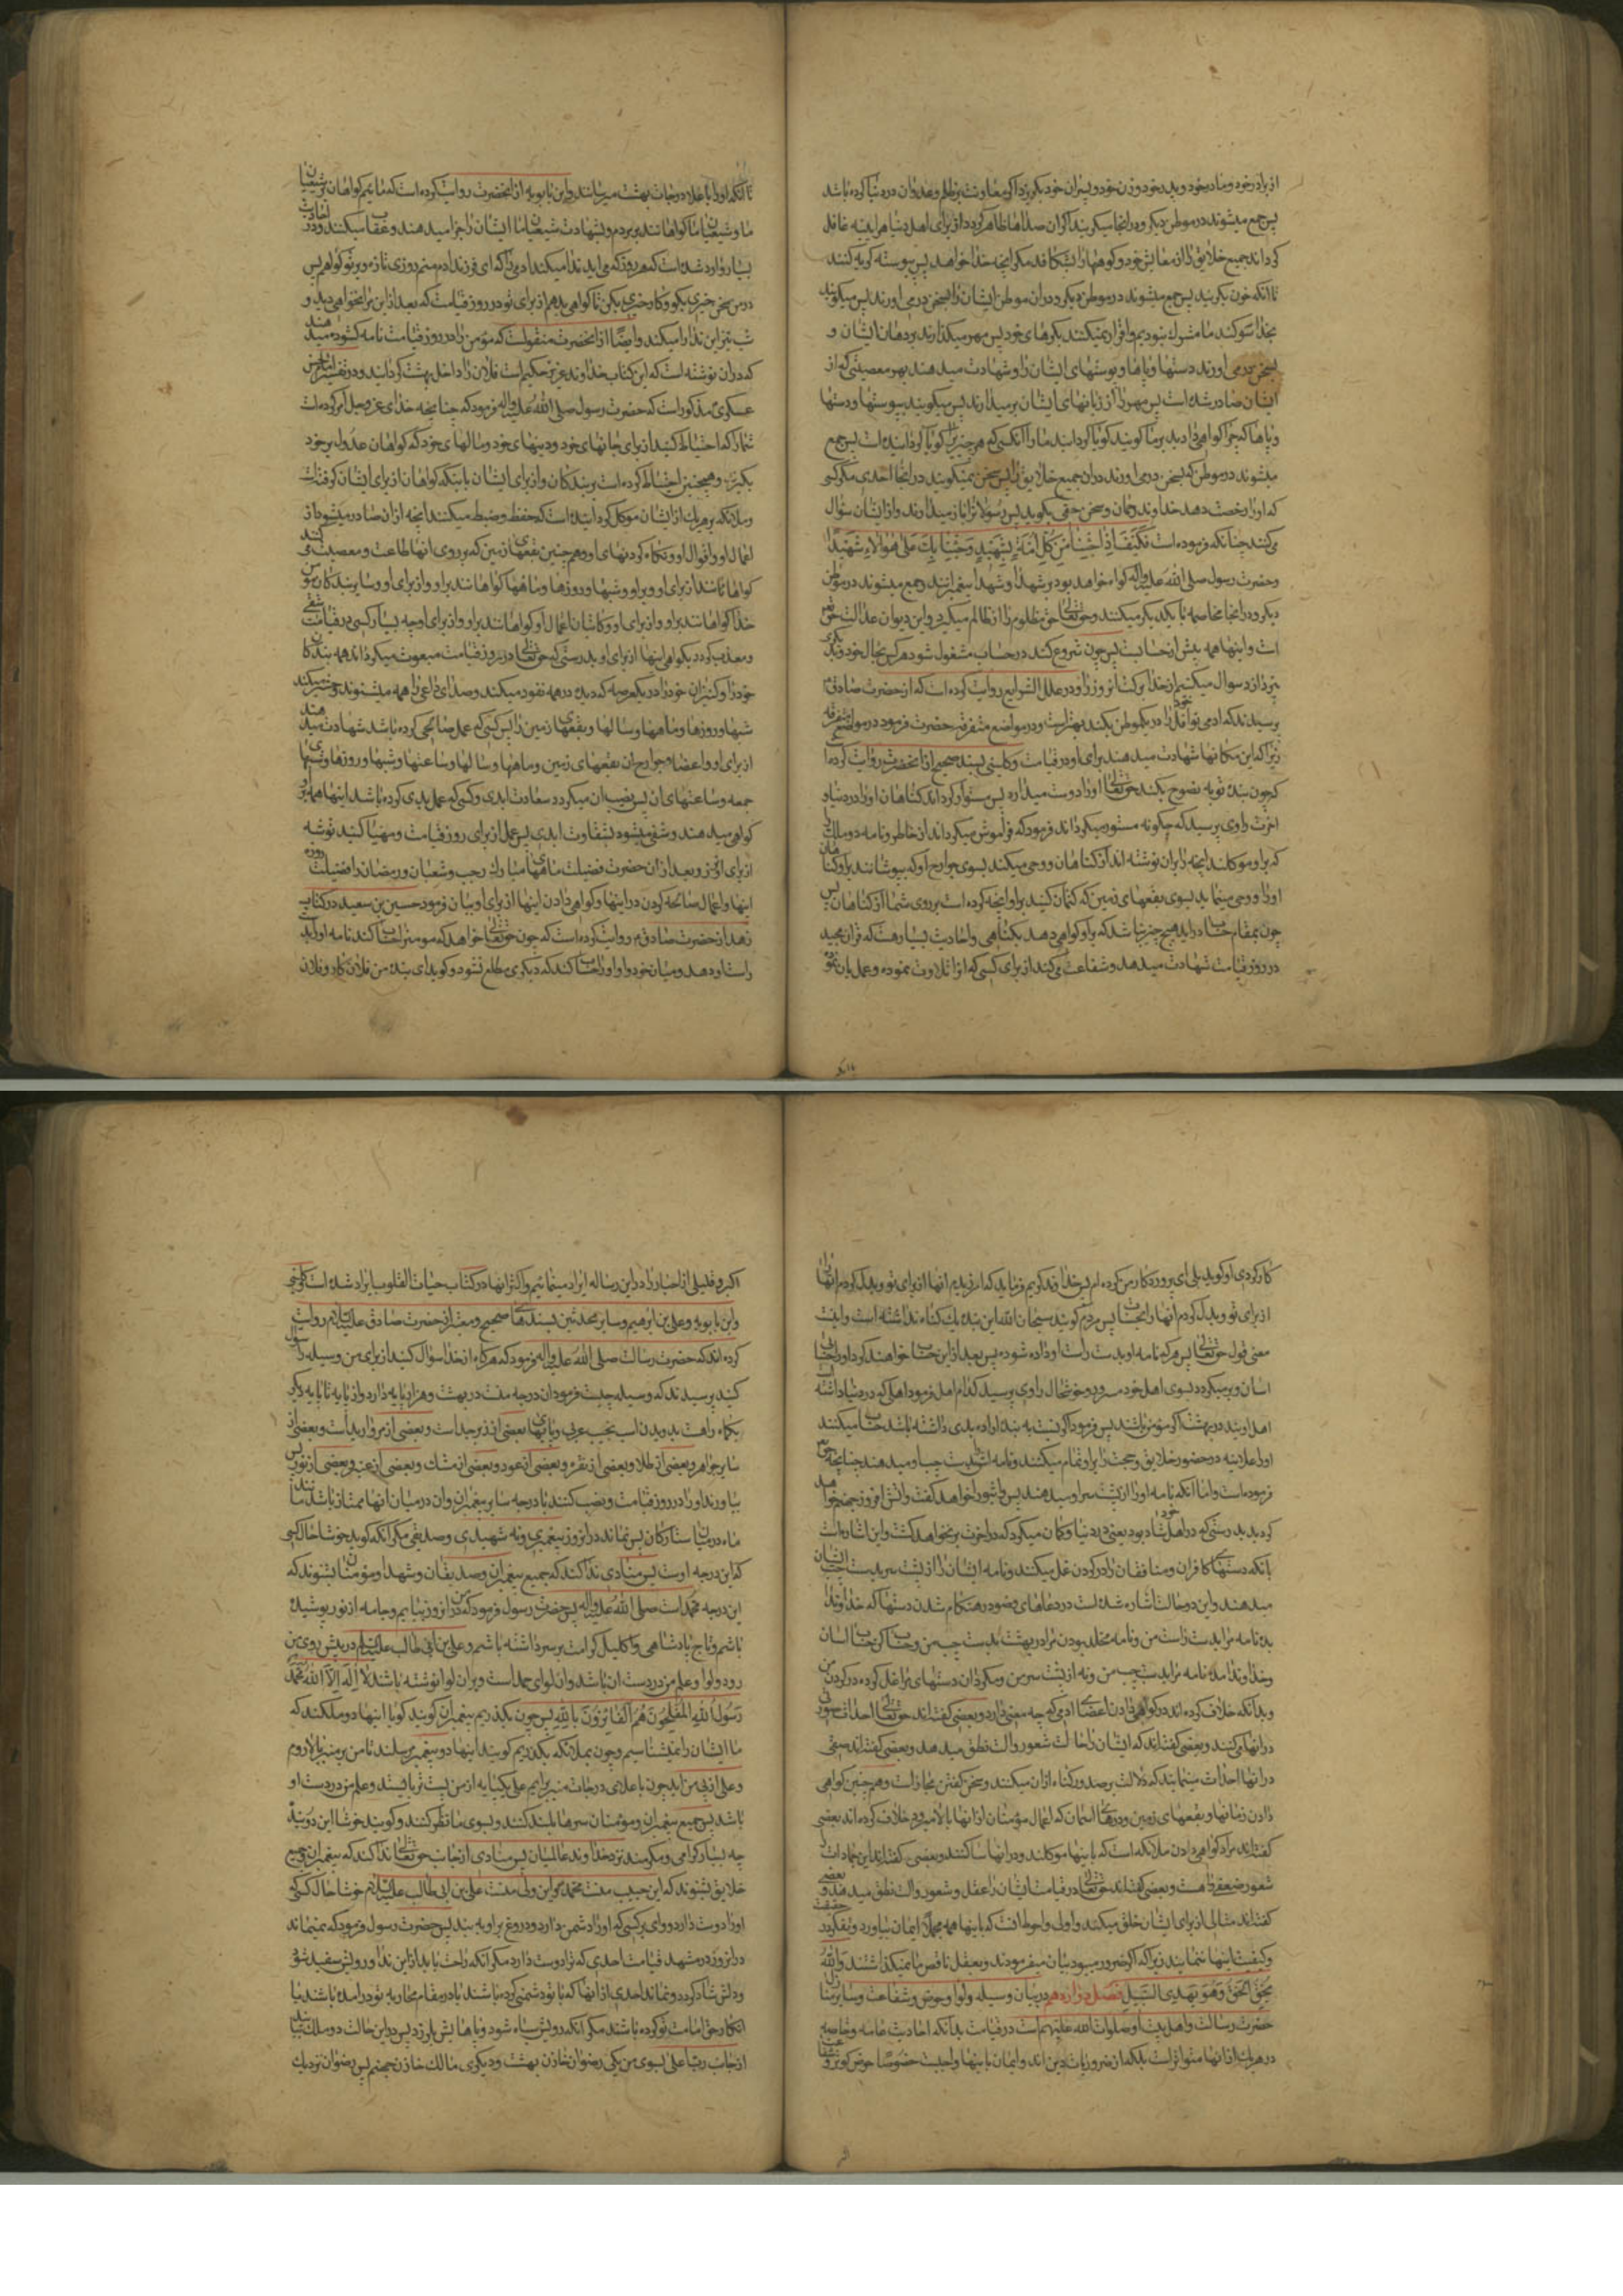 از برادر خود و مادر خود و پدر خود و زن خود و پسران خود بگریزد اگر معاونت بر ظلم و عدوان در دنیا کرده باشد
پس جمع میشوند در موطن دیگر و در انجا میگریند اگر ان صداها ظاهر گردد از برای اهل دنیا هر اینه غافل
گرداند جمیع خلایق را از معایش خود و کوهها را بشکافد مگر انچه خدا خواهد پس پیوسته گریه کنند
تا انکه خون بگریند پس جمع میشوند در موطن دیگر و در ان موطن ایشان را بسخن در می اورند پس میگویند
بخدا سوگند ما مشرک نبودیم و اقرار نمیکنند بکردهای خود پس مهر میگذارند بر دهان ایشان و
بسخن در می اورند دستها و پاها و پوستهای ایشان را و شهادت میدهند بهر معصیتی که از
ایشان صادر شده است پس مهر را از زبانهای ایشان بر میدارند پس میگویند بپوستها و دستها
و پاها که چرا گواهی دادید بر ما گویند گویا گردانید ما را انکسی که هر چیز را گویا گردانیده است پس جمع
میشوند در موطن که بسخن در می اورند در ان جمیع خلایق را پس سخن نمیگویند در انجا احدی مگر کسی
که او را رخصت دهد خداوند رحمان و سخن حق بگوید پس رسولان را باز میدارند و از ایشان سؤال
می کنند چنانکه فرموده است فَكَيْفَ اِذَا جِئْنَا مِنْ كُلِّ اُمَّةٍ بِشَهِيْدٍ وَجِئْنَا بِكَ عَلٰى هٰؤُلَاءِ شَهِيْدًا
و حضرت رسول صلی الله علیه و اله گواه خواهد بود بر شهدا و شهدا پیغمبرانند و جمع میشوند در موطن
دیگر و در انجا مخاصمه با یکدیگر میکنند و حق تعالی حق مظلوم را از ظالم میگیرد و این دیوان عدالت حق
است و اینها همه پیش از حسابست پس چون شروع کنند در حساب مشغول شود هر کس بحال خود و بدیگری
نپردازد سوال میکنیم از خدا برکت انروز را و در علل الشرایع روایت کرده است که از حضرت صادق
پرسیدند که ادمی نوافل خود را در یکموطن بکند بهتر است و در مواضع متفرقه حضرت فرمود در مواضع متفرقه
زیرا که این مکانها شهادت میدهند برای او در قیامت و کلینی بسند صحیح از انحضرت روایت کرده است
که چون بنده توبه نصوح بکند حق تعالی او را دوست میدارد پس مستور گرداند گناهان او را در دنیا و
اخرت راوی پرسید که چگونه مستور میگرداند فرمود که فراموش میگرداند از خاطر دو ملک
که بر او موکلند انچه را بر ان نوشته اند از گناهان و وحی میکند بسوی جوارح او که بپوشانند بر او گناهان
او را و وحی مینماید بسوی بقعهای زمین که کتمان کنید بر او انچه کرده است بر روی شما از گناهان پس
چون بمقام حساب در اید هیچ چیز نباشد که بر او گواهی دهد بگناهی و احادیث بسیار هست که قران مجید
در روز قیامت شهادت میدهد و شفاعت می کند از برای کسی که او را تلاوت نموده و عمل بان نموده
تا انکه او را باعلاء درجات بهشت میرسانند و ابن بابویه از انحضرت روایت کرده است که مائیم گواهان بر شیعیان
ما و شیعیان ما گواهانند بر مردم و بشهادت شیعیان ما ایشان را جزا میدهند و عقاب میکنند و در احادیث
بسیار وارد شده است که هر روز که می اید ندا میکند ادمی را که ای فرزند ادم منم روزی تازه و بر تو گواهم پس
در من سخن خیری بگو و کار خیری بکن تا گواهی بدهم از برای تو در روز قیامت که بعد از این مرا نخواهی دید و
شب نیز این ندا را میکند و ایضا از انحضرت منقولست که مؤمن را در روز قیامت نامه گشوده میدهند
که در ان نوشته است که این کتاب خداوند عزیز حکیم است فلان را داخل بهشت گردانید و در تفسیر امام حسن
عسکری مذکور است که حضرت رسول صلی الله علیه و اله فرمود که چنانچه خدای عز و جل امر کرده است
شما را که احتیاط کنید از برای جانهای خود و دینهای خود و مالهای خود که گواهان عدول بر خود
بگیرید و همچنین احتیاط کرده است بر بندگان و از برای ایشان باینکه گواهان از برای ایشان گرفته است
و ملائکه بر هر یک از ایشان موکل گردانیده است که حفظ و ضبط میکنند انچه از ان صادر میشود از
اعمال او و اقوال او و نگاه کردنهای او و همچنین بقعهای زمین که بر روی انها طاعت و معصیت می کند
گواهانند از برای او و بر او و شبها و روزها و ماهها گواهانند بر او و از برای او و سایر بندگان مؤمن
خدا گواهانند بر او و از برای او و کاتبان اعمال او گواهانند بر او و از برای او چه بسیار کسی در قیامت شقی
و معذب گردد بگواهی اینها از برای او بدرستی که حق تعالی در روز قیامت مبعوث میگرداند همه بندگان
خود را و کنیزان خود را در یک عرصه که دیده در همه نفوذ میکند و صدای داعی را همه میشنوند و حشر میکند
شبها و روزها و ماهها و سالها و بقعهای زمین را پس کسی که عمل صالحی کرده باشد شهادت میدهند
از برای او و اعضا و جوارح ان بقعهای زمین و ماهها و سالها و ساعتها و شبها و روزها و شبهای
جمعه و ساعتهای ان پس نصیب ان میگردد سعادت ابدی و کسی که عمل بدی کرده باشد اینها همه بر او
گواهی میدهند و شقی میشود بشقاوت ابدی پس عمل از برای روز قیامت و مهیا کنید توشه
از برای انروز و بعد از ان حضرت فضیلت ماههای مبارک رجب و شعبان و رمضان را فضیلت روزه
اینها و اعمال صالحه کردن در اینها و گواهی دادن اینها از برای او بیان فرمود حسین بن سعید در کتاب
زهد از حضرت صادق روایت کرده است که چون حق تعالی خواهد که مؤمن را حساب کند نامه او را بدست
راست او دهد و میان خود و او او را حساب کند که دیگری مطلع نشود و گوید ای بنده من فلان کار و فلان
کار کردی او گوید بلی ای پروردگار من کرده ام پس خداوند کریم فرماید که امرزیدم انها از برای تو و بدل کردم انها
از برای تو و بدل کردم انها را بحسنات پس مردم گویند سبحان الله این بنده یک گناه نداشته است و اینست
معنی قول حق تعالی پس هر که نامه او بدست راست او داده شود پس بعد از این حساب خواهند کرد او را حسابی
اسان و بر میگردد بسوی اهل خود مسرور و خوشحال راوی پرسید کدام اهل فرمود اهلی که در دنیا داشته است
اهل اویند در بهشت اگر مؤمن باشند پس فرمود اگر نسبت به بنده اراده بدی داشته باشد حساب میکنند
او را علانیه در حضور خلایق و حجت را بر او تمام میکنند و نامه اش را بدست چپ او میدهند چنانچه حق تعالی
فرموده است و اما انکه نامه او را از پشت سر او میدهند پس واثبورا خواهد گفت و اتش افروز جهنم خواهد
گردید بدرستی که در اهل خود شاد بود یعنی در دنیا و گمان میکرد که در اخرت بر نخواهد گشت و این اشاره است
بانکه دستهای کافران و منافقان را در گردن غل میکنند و نامه ایشان را از پشت سر بدست چپ ایشان
میدهند و این دو حالت اشاره شده است در دعاهای وضو در هنگام شستن دستها که خداوندا
بده نامه مرا بدست راست من و نامه مخلد بودن مرا در بهشت بدست چپ من و حساب کن مرا حساب اسان
و خداوندا مده نامه مرا بدست چپ من و نه از پشت سر من و مگردان دستهای مرا غل کرده در گردن من
و بدانکه خلاف کرده اند در گواهی دادن اعضاء ادمی که چه معنی دارد و بعضی گفته اند حق تعالی احداث صوتی
در انها می کنند و بعضی گفته اند که ایشان را حالت شعور و الت نطق میدهد و بعضی گفته اند صفتی
در انها احداث مینماید که دلالت بر صدور گناه از ان میکند و سخن گفتن مجاز است و همچنین گواهی
دادن زمانها و بقعهای زمین و درهای اسمان که اعمال مؤمنان از انها بالا میرود خلاف کرده اند بعضی
گفته اند مراد گواهی دادن ملائکه است که باینها موکلند و در انها ساکنند و بعضی گفته اند این جمادات را
شعور ضعیفی هست و بعضی گفته اند حق تعالی در قیامت ایشان را عقل و شعور و الت نطق میدهد و بعضی
گفته اند مثالی از برای ایشان خلق میکند و اولی و احوط انست که باینها همه مجملا ایمان بیاورد و تفکر در حقیقت
و کیفیت اینها ننمایند زیرا که اگر ضرور میبود بیان میفرمودند و بعقل ناقص ما نمیگذاشتند وَاللّٰهُ
يُحِقُّ الْحَقَّ وَهُوَ يَهْدِي السَّبِيْلَ فصل دوازدهم در بیان وسیله و لوا و حوض و شفاعت و سایر منازل
حضرت رسالت و اهل بیت او صلوات الله علیهم است در قیامت بدانکه احادیث عامه و خاصه
در هر یک از انها متواتر است بلکه از ضروریات دین اند و ایمان باینها واجبست خصوصا حوض کوثر و شفاعت
اکبر و قلیلی از اخبار را در این رساله ایراد مینمائیم و اکثر انها در کتاب حیات القلوب ایراد شده است کلینی
و ابن بابویه و علی بن ابراهیم و سایر محدثین بسندهای صحیح و معتبر از حضرت صادق علیه السلام روایت
کرده اند که حضرت رسالت صلی الله علیه و اله فرمود که هر گاه از خدا سؤال کنید از برای من وسیله را سؤال
کنید پرسیدند که وسیله چیست فرمود ان درجه منست در بهشت و هزار پایه دارد و از پایه تا پایه دیگر
یکماه راهست بدویدن اسب نجیب عربی و پایهای بعضی از زبرجد است و بعضی از مروارید است و بعضی از
سایر جواهر و بعضی از طلا و بعضی از نقره و بعضی از عود و بعضی از مشک و بعضی از عنبر و بعضی از نور پس
بیاورند او را در روز قیامت و نصب کنند با درجه سایر پیغمبران و ان در میان انها ممتاز باشد مانند
ماه در میان ستارگان پس نماند در انروز پیغمبری و نه شهیدی و صدیقی مگر انکه گوید خوشا حال کسی
که این درجه اوست پس منادی ندا کند که جمیع پیغمبران و صدیقان و شهدا و مؤمنان بشنوند که
این درجه محمد است صلی الله علیه و اله پس حضرت رسول فرمود که من در انروز بیایم و جامه از نور پوشیده
باشم و تاج پادشاهی و اکلیل کرامت بر سر داشته باشم و علی بن ابی طالب علیه السلام در پیش روی من
رود و لوا و علم من در دست ان باشد و ان لوای حمد است و بر ان لوا نوشته باشد لَا اِلٰهَ اِلَّا اللّٰهُ مُحَمَّدٌ
رَسُوْلُ اللّٰهِ الْمُفْلِحُوْنَ هُمُ الْفَائِزُوْنَ بِاللّٰهِ پس چون بگذریم پیغمبران گویند گویا اینها دو ملکند که
ما ایشان را نمیشناسیم و چون بملائکه بگذریم گویند اینها دو پیغمبر مرسلند تا من بر منبر بالا روم
و علی از پی من اید چون باعلای درجات منبر برایم علی یکپایه از من پست تر بایستد و علم من در دست او
باشد پس جمیع پیغمبران و مؤمنان سرها بلند کنند و بسوی ما نظر کنند و گویند خوشا این دو بنده
چه بسیار گرامی و مکرمند نزد خداوند عالمیان پس منادی از جانب حق تعالی ندا کند که پیغمبران و جمیع
خلایق بشنوند که این حبیب منست محمد و این ولی منست علی بن ابی طالب علیه السلام خوشا حال کسی که
او را دوست دارد و وای بر کسی که او را دشمن دارد و دروغ بر او به بندد پس حضرت رسول فرمود که نمیماند
در انروز در مشهد قیامت احدی که ترا دوست دارد مگر انکه راحت یابد از این ندا و رویش سفید شود
و دلش شاد گردد و نماند احدی از انها که با تو دشمنی کرده باشند یا در مقام محاربه تو در امده باشند یا
انکار حق امامت تو کرده باشند مگر انکه رویش سیاه شود و پاهایش بلرزد پس در این حالت دو ملک بیاید
از جانب رب اعلی بسوی من یکی رضوان خازن بهشت و دیگری مالک خازن جهنم پس رضوان نزدیک